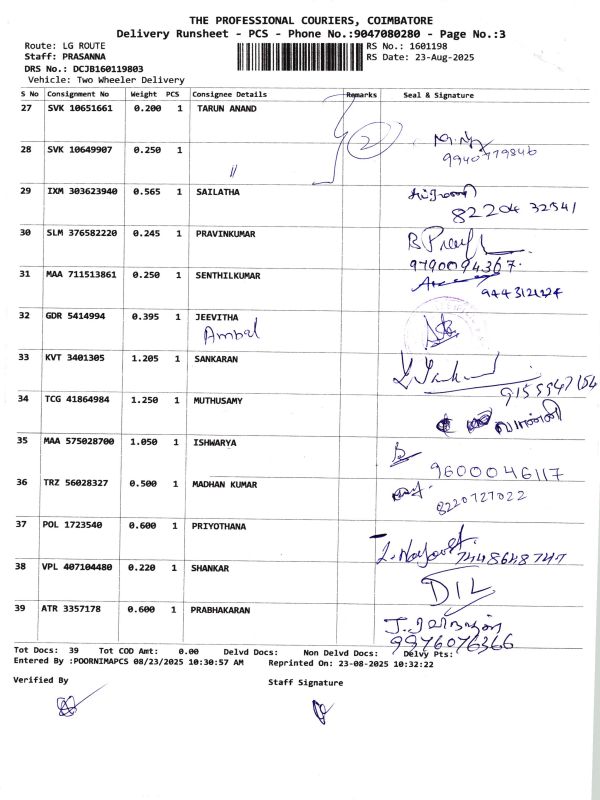 THE PROFESSIONAL COURIERS, COIMBATORE
Delivery Runsheet - PCS - Phone No.:9047080280 - Page No.:3
Route: LG ROUTE RS No.: 1601198
Staff: PRASANNA RS Date: 23-Aug-2025
DRS No.: DCJB160119803
Vehicle: Two Wheeler Delivery
S No Consignment No Weight PCS Consignee Details Remarks Seal & Signature
27 SVK 10651661 0.200 1 TARUN ANAND
2
28 SVK 10649907 0.250 1 〃
9940779846
29 IXM 303623940 0.565 1 SAILATHA
82204 32541
30 SLM 376582220 0.245 1 PRAVINKUMAR
9790094367.
31 MAA 711513861 0.250 1 SENTHILKUMAR
32 GDR 5414994 0.395 1 JEEVITHA
Ambal
33 KVT 3401305 1.205 1 SANKARAN
9155947154
34 TCG 41864984 1.250 1 MUTHUSAMY
35 MAA 575028700 1.050 1 ISHWARYA
9600046117
36 TRZ 56028327 0.500 1 MADHAN KUMAR
8220727022
37 POL 1723540 0.600 1 PRIYOTHANA
7448648747
38 VPL 407104480 0.220 1 SHANKAR
DIL
39 ATR 3357178 0.600 1 PRABHAKARAN
9976076366
Tot Docs: 39 Tot COD Amt: 0.00 Delvd Docs: Non Delvd Docs: Delvy Pts:
Entered By :POORNIMAPCS 08/23/2025 10:30:57 AM Reprinted On: 23-08-2025 10:32:22
Verified By Staff Signature